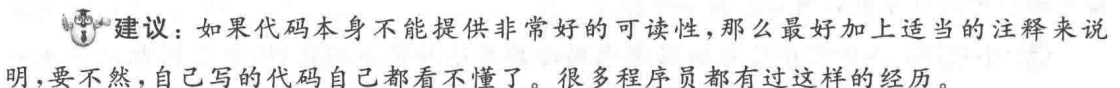 建议：如果代码本身不能提供非常好的可读性，那么最好加上适当的注释来说
明，要不然，自己写的代码自己都看不懂了。很多程序员都有过这样的经历。